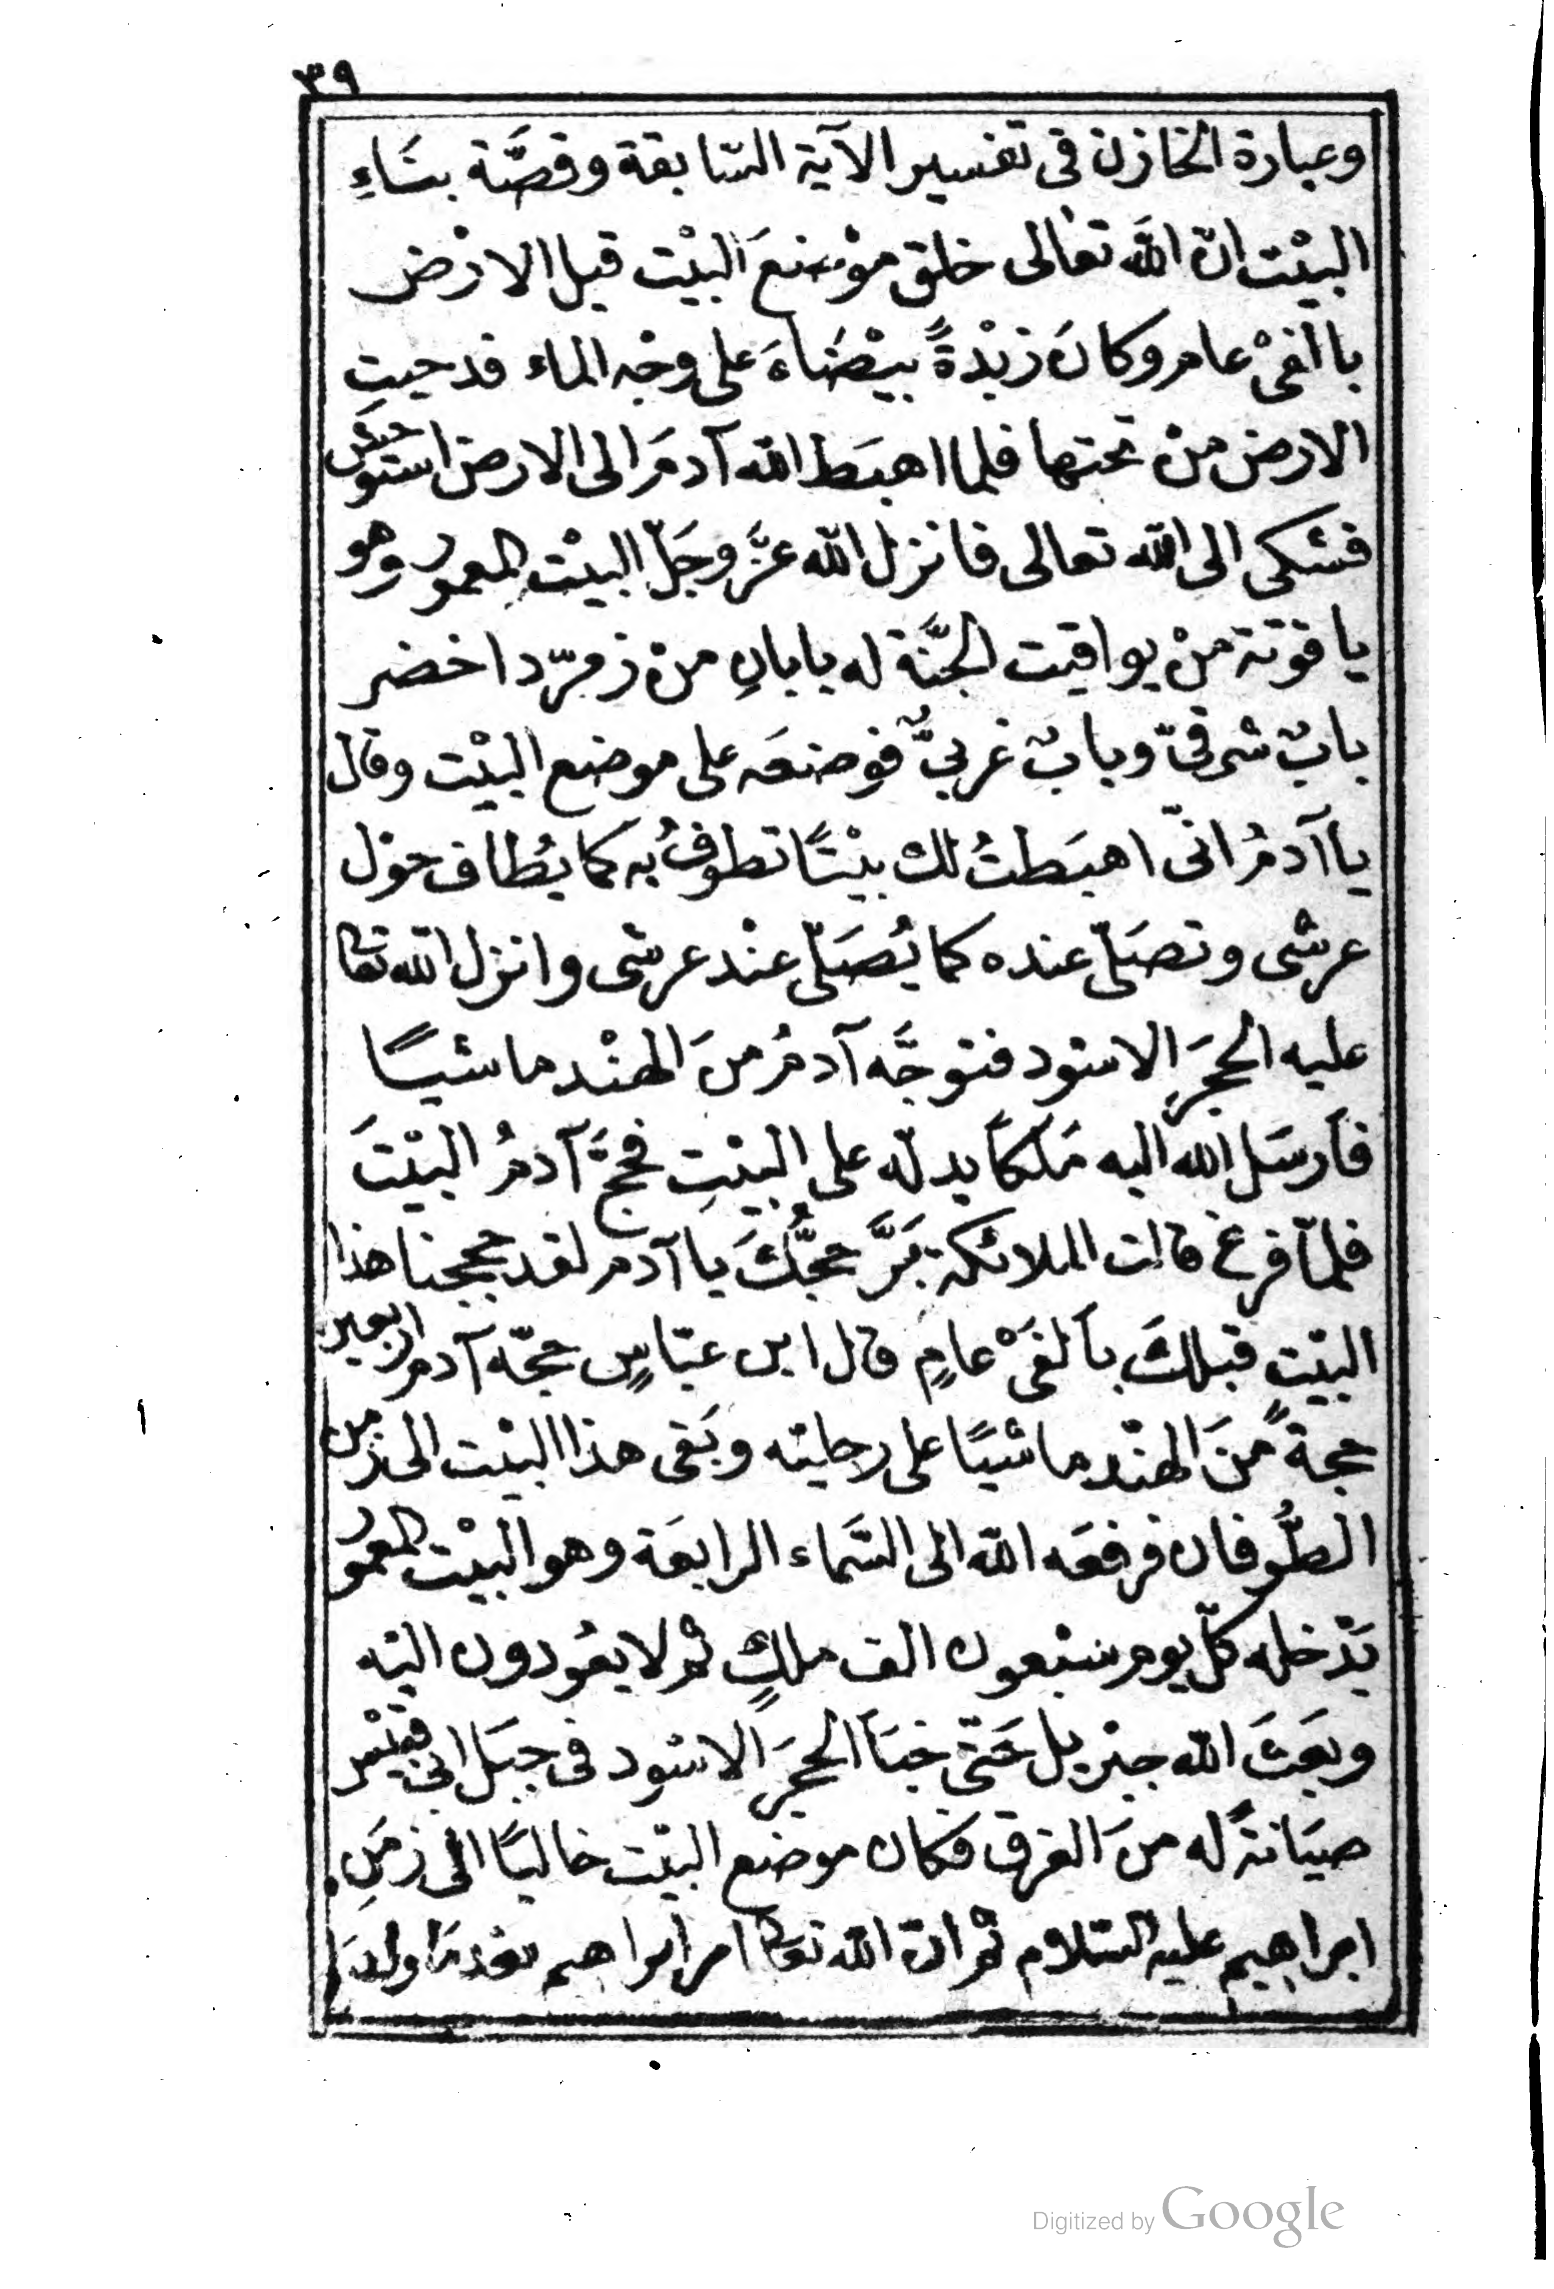 ٣٩
وعبارة الخازن فى تفسير الآية السّابقة وقصَّة بنَاءِ
البيْت انّ اللّه تعالى خلق موْضعَ البيْت قبل الارْض
بالفىْ عام وكانَ زبْدةً بيْضَاءَ على وجْه الماء فدحيتِ
الارض منْ تحتها فلما اهبَط اللّه آدمَ الى الارض استوحَشَ
فشكى الى اللّه تعالى فانزل اللّه عزَّ وجَلّ البيْت المعمور وهو
ياقوتة منْ يواقيت الجَّنة له بابانِ منْ زمرّد اخضر
بابٌ شرقىّ وبابٌ غربىٌّ فوضعَه على موضع البيْت وقال
يا آدمُ انّى اهبَطتُ لك بيْتًا تطوفُ به كما يُطاف حوْل
عرشى وتصَلّى عنده كما يُصَلّى عنْد عرشى وانزل اللّه تعا
عليه الحجَرَ الاسْود فتوجَّه آدمُ منَ الهنْد ماشيًا
فأرسَل اللّه اليه مَلَكًا يدلّه على البيْتِ فحجَّ آدمُ البيْتَ
فلمّا فرغ قالت الملائكة بَرَّ حجُّكَ يا آدم لقد حججنا هذا
البيْت قبلكَ بألفَىْ عامٍ قال ابن عبّاسٍ حجّه آدم اربعين
حجةً منَ الهنْد ماشيًا على رجليْه وبَقى هذا البيْت الى زمن
الطُّوفان فرفعَه اللّه الى السَّماء الرابعَة وهو البيْت المعمور
يَدْخله كلّ يوم سبْعون الف ملكٍ ثم لا يعُودون اليْه
وبَعَثَ اللّه جبْريل حَتّى خبَأ الحجَرَ الاسْود فى جبَل ابى قبيْس
صيَانةً له منَ الغرق فكان موضع البيْت خاليًا الى زمَنِ
ابراهيم عليه السّلام ثم انّ اللّه تعا امر ابراهيم بعْد مَا ولد
Digitized by Google